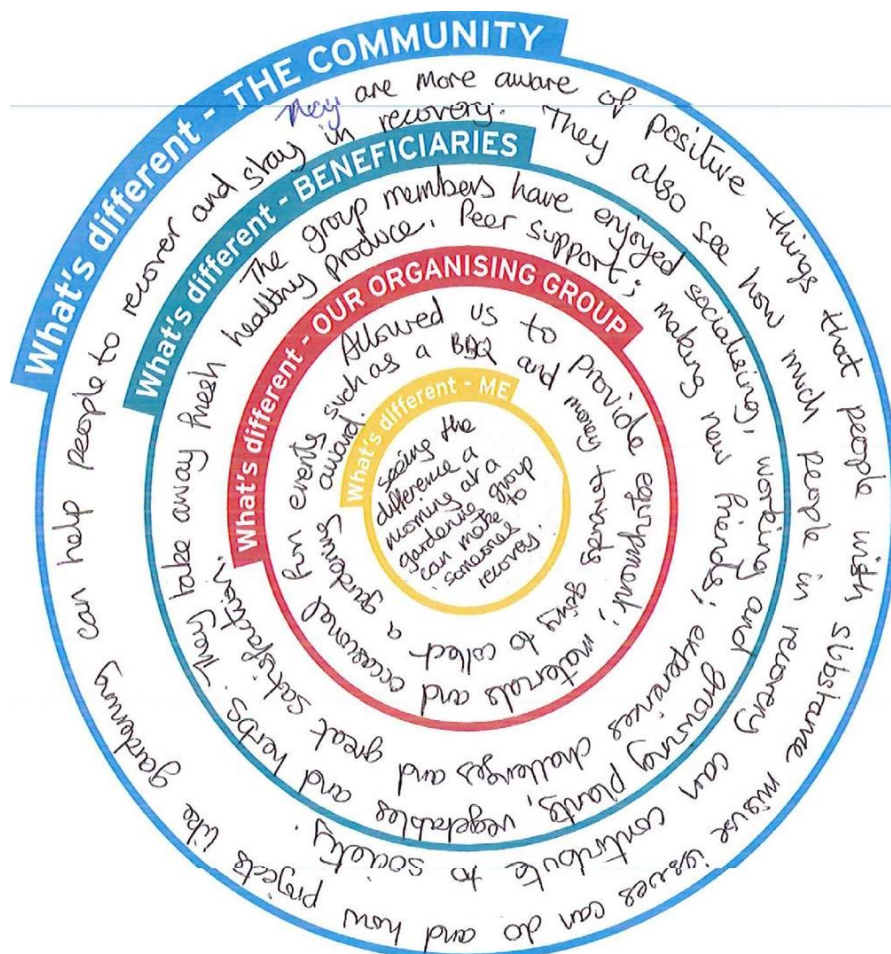 What's different - THE COMMUNITY
They are more aware of positive things that people with substance misuse issues can do and how projects like gardening can help people to recover and stay in recovery. They also see how much people in recovery can contribute to society.
What's different - BENEFICIARIES
The group members have enjoyed socialising, working and growing plants, vegetables and herbs. They take away fresh healthy produce. Peer support; making new friends; experiences challenges and great satisfaction.
What's different - OUR ORGANISING GROUP
Allowed us to provide equipment; materials and occasional fun events such as a BBQ and money towards going to collect a gardening award.
What's different - ME
seeing the
difference a
morning at a
gardening group
can make to
someones
recovery.